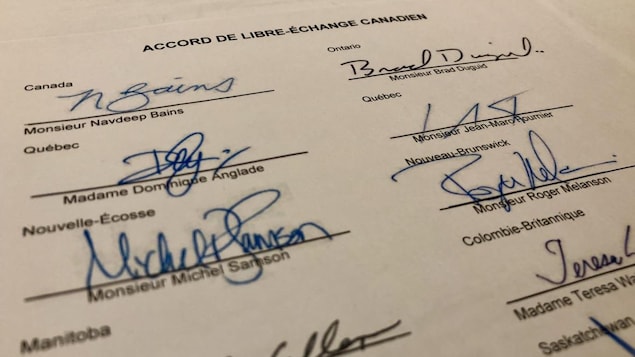 ACCORD DE LIBRE-ÉCHANGE CANADIEN
Canada
N Bains
Monsieur Navdeep Bains
Québec
Madame Dominique Anglade
Nouvelle-Écosse
Michel Samson
Monsieur Michel Samson
Manitoba
Ontario
Brad Duguid
Monsieur Brad Duguid
Québec
Monsieur Jean-Marc Fournier
Nouveau-Brunswick
Roger Melanson
Monsieur Roger Melanson
Colombie-Britannique
Teresa
Madame Teresa Wa
Saskatchewan